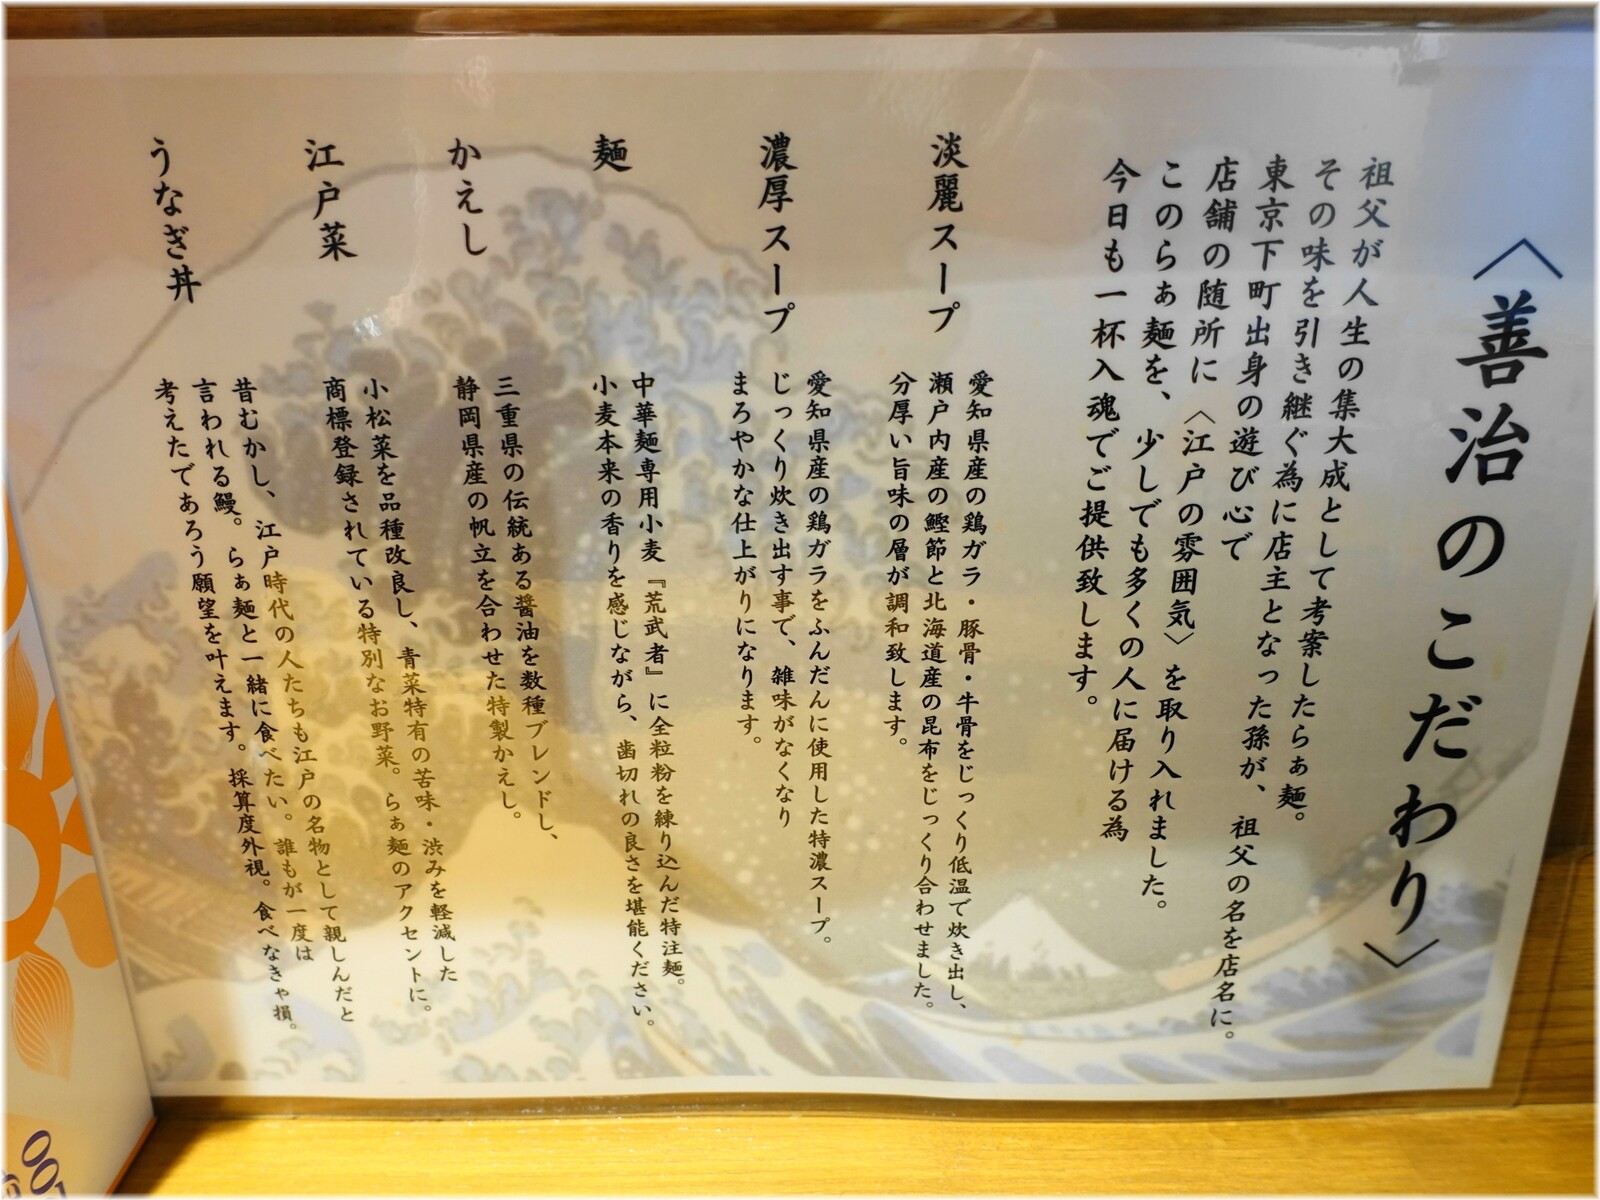 〈善治のこだわり〉
祖父が人生の集大成として考案したらぁ麺。
その味を引き継ぐ為に店主となった孫が、祖父の名を店名に。
東京下町出身の遊び心で
店舗の随所に〈江戸の雰囲気〉を取り入れました。
このらぁ麺を、少しでも多くの人に届ける為
今日も一杯入魂でご提供致します。
淡麗スープ
愛知県産の鶏ガラ・豚骨・牛骨をじっくり低温で炊き出し、
瀬戸内産の鰹節と北海道産の昆布をじっくり合わせました。
分厚い旨味の層が調和致します。
濃厚スープ
愛知県産の鶏ガラをふんだんに使用した特濃スープ。
じっくり炊き出す事で、雑味がなくなり
まろやかな仕上がりになります。
麺
中華麺専用小麦『荒武者』に全粒粉を練り込んだ特注麺。
小麦本来の香りを感じながら、歯切れの良さを堪能ください。
かえし
三重県の伝統ある醤油を数種ブレンドし、
静岡県産の帆立を合わせた特製かえし。
江戸菜
小松菜を品種改良し、青菜特有の苦味・渋みを軽減した
商標登録されている特別なお野菜。らぁ麺のアクセントに。
うなぎ丼
昔むかし、江戸時代の人たちも江戸の名物として親しんだと
言われる鰻。らぁ麺と一緒に食べたい。誰もが一度は
考えたであろう願望を叶えます。採算度外視。食べなきゃ損。